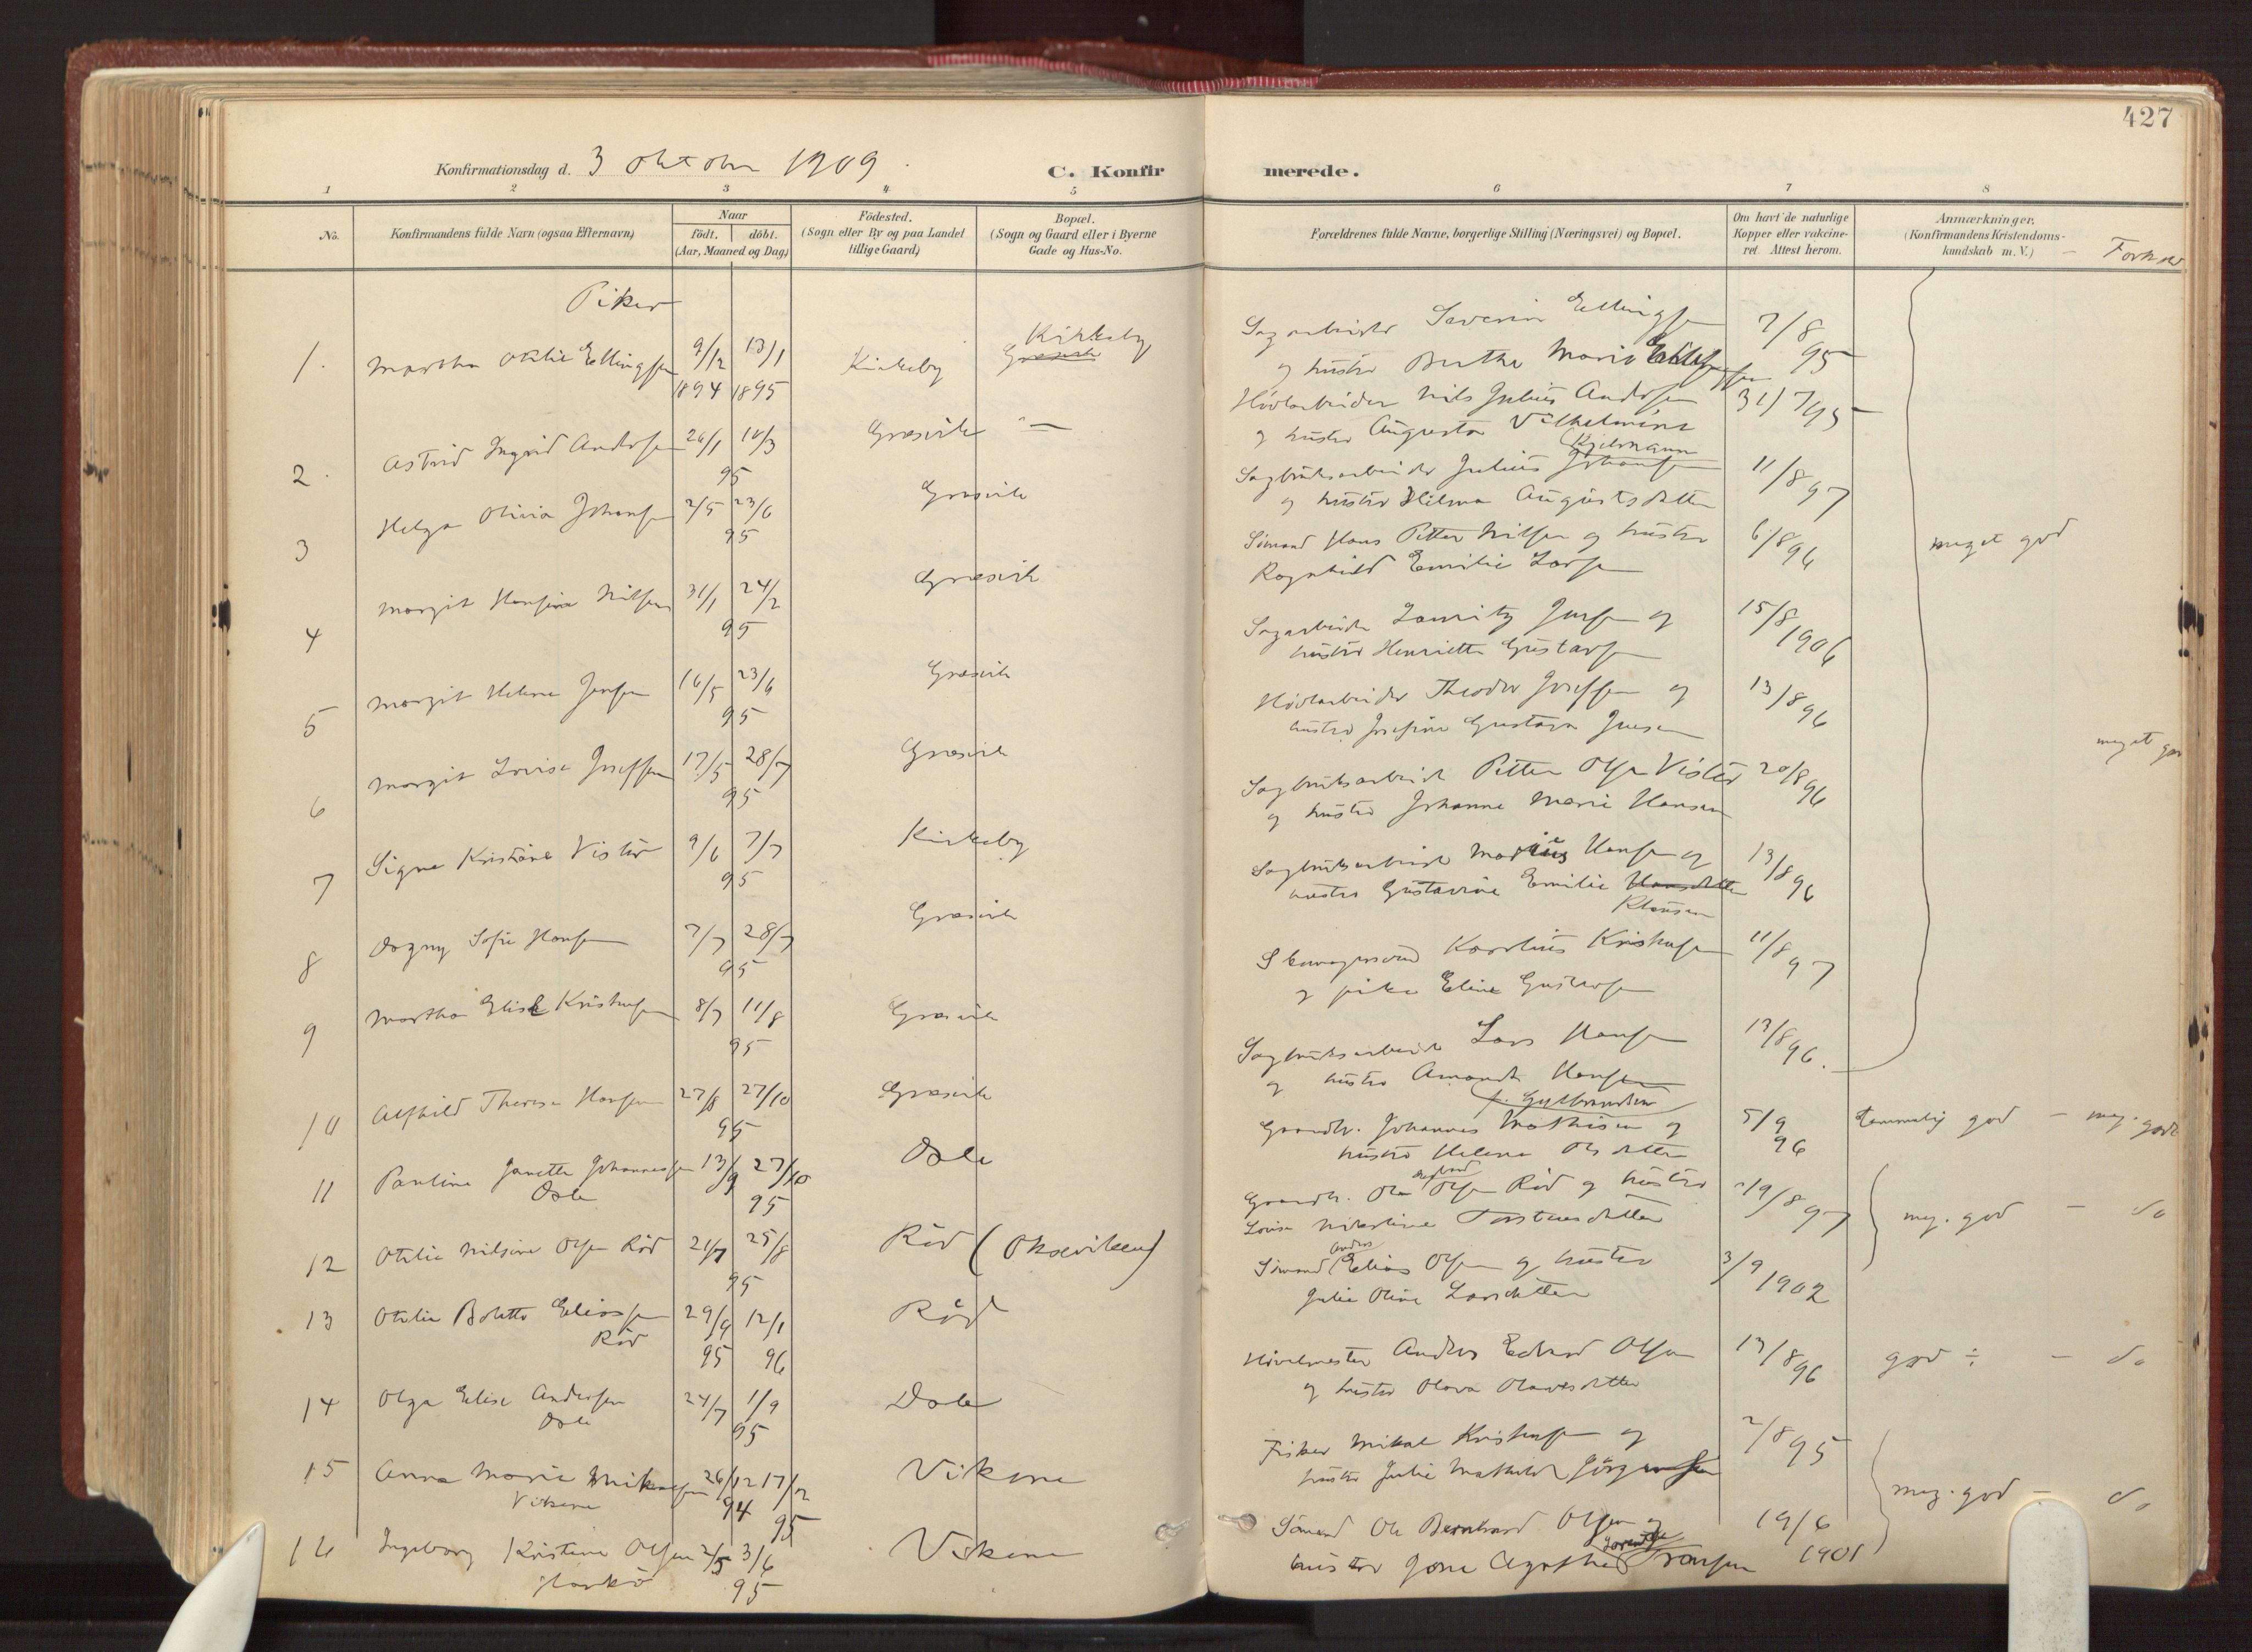 427
Konfirmationsdag d. 3 Oktober 1909.
C. Konfirmerede.
1 2 3 4 5 6 7 8
No.
Konfirmandens fulde Navn (ogsaa Efternavn)
Naar
födt. döbt.
(Aar, Maaned og Dag)
Födested.
(Sogn eller By og paa Landet
tillige Gaard)
Bopæl.
(Sogn og Gaard eller i Byerne
Gade og Hus-No.
Forældrenes fulde Navne, borgerlige Stilling (Næringsvei) og Bopæl.
Om havt de naturlige
Kopper eller vakcine-
ret. Attest herom.
Anmærkninger.
(Konfirmandens Kristendoms-
kundskab m. V.) - Forhold
Piker
1. Martha Otilie Ellingsen 9/12 1894 13/1 1895 Kirkeby Kirkeby Græsvik
Sagarbeider Severin Ellingsen
og hustru Berthe Marie 7/8 95
2. Astrid Ingrid Andersen 26/1 10/3 95 Græsvik "—
Høvlarbeider Nils Julius Andersen
og hustru Augusta Vilhelmine 31/7 95
3 Helga Olivia Johansen 2/5 23/6 95 Græsvik
Sagbruksarbeider Julius Johansen
og hustru Hilma Augustsdatter 11/8 97
4 Margit Hansine Nilsen 31/1 24/2 95 Græsvik
Sömand Hans Petter Nilsen og hustru
Ragnhild Emilie Larsen 6/8 96
meget god
5 Margit Helene Jensen 16/5 23/6 95 Græsvik
Sagarbeider Lauritz Jensen og
hustru Henriette Gustavsen 15/8 1906
6 Margit Lovise Joseffsen 17/5 28/7 95 Græsvik
Høvlarbeider Theodor Joseffsen og
hustru Josefine Gustava Jensen 13/8 96
meget god
7 Signe Kristine Vister 9/6 7/7 95 Kirkeby
Sagbruksarbeider Petter Olsen Vister
og hustru Johanne Marie Hansen 20/8 96
8 Dagny Sofie Hansen 7/7 28/7 95 Græsvik
Sagbruksarbeider Marius Hansen og
hustru Gustavine Emilie Hansdatter
Klausen 13/8 96
9 Martha Elise Kristensen 8/7 11/8 95 Græsvik
Karolius Kristensen
og pike Eline Gustavsen 11/8 97
10 Alfhild Therese Hansen 27/8 27/10 95 Græsvik
Sagbruksarbeider Lars Hansen
og hustru Amanda Hansen
f. Gulbrandsen 13/8 96.
11 Pauline Janette Johannessen
Dale 13/9 27/10 95 Dale
Gaardbr. Johannes Mathisen og
hustru Helene Olsdatter 5/9 96
temmelig god - meg. god
12 Otilie Nilsine Olsen Röd 21/7 25/8 95 Röd (Oksviken)
Gaardbr. Ole Olsen Röd og hustru
Lovise Nikoline Torstensdatter 19/8 97
meg. god - do
13 Otilie Bolette Eliassen
Röd 29/9 95 12/1 96 Röd
Sömand Anders Elias Olsen og hustru
Julie Oline Larsdatter 3/9 1902
14 Olga Elise Andersen
Dale 24/7 1/9 95 Dale
Hövelmester Anders Edvard Olsen
og hustru Olava Olavesdatter 13/8 96
god ÷ - do
15 Anna Marie Mikalsen
Vikene 26/12 94 17/2 95 Vikene
Fisker Mikal Kristensen og
hustru Julie Mathilde Jörgensen 2/8 95
meg. god - do
16 Ingeborg Kristine Olsen
Hankö 2/5 3/6 95 Vikene
Sömand Ole Bernhard Olsen og
hustru Agathe Fransen 19/6 1901